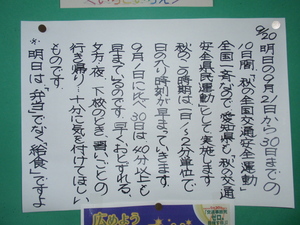 9/20
明日の9月21日から30日までの
10日間、「秋の全国交通安全運動」
全国一斉なので、愛知県も「秋の交通
安全県民運動」として実施します
秋のこの時期は一日1~2分単位で
日の入り時刻が早まっていきます。
9月1日に比べ30日は40分以上も
早まっているのです。早くおとずれる、
夕方、夜、下校のとき、習いごとの
行き帰り…十分に気を付けてほしい
ものです。
※明日は「弁当でなく給食」ですよ
広めよう
ゼロ